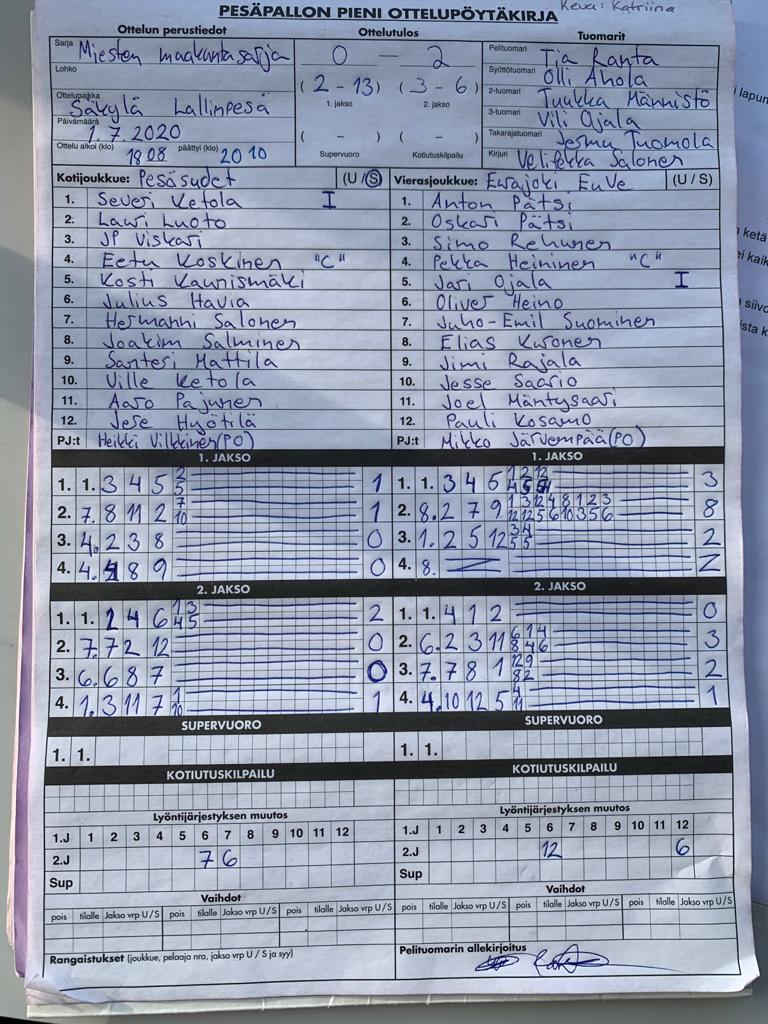 PESÄPALLON PIENI OTTELUPÖYTÄKIRJA
Keva: Katriina
Ottelun perustiedot
Ottelutulos
Tuomarit
Sarja Miesten maakuntasarja
0 - 2
Pelituomari Tia Ranta
Lohko
(2 - 13) (3 - 6)
Syöttötuomari Olli Ahola
1. jakso 2. jakso
Ottelupaikka Säkylä Lallinpesä
2-tuomari Tuukka Männistö
Päivämäärä 1.7.2020
( - ) ( - )
3-tuomari Vili Ojala
Ottelu alkoi (klo) 18 08 päättyi (klo) 20 10
Supervuoro Kotiutuskilpailu
Takarajatuomari Jesmu Tuomola
Kirjuri Velipekka Salonen
Kotijoukkue: Pesäsudet (U/S)
Vierasjoukkue: Eurajoki EuVe (U / S)
1. Severi Ketola I
2. Lauri Luoto
3. JP Viskari
4. Eetu Koskinen "C"
5. Kosti Kaunismäki
6. Julius Havia
7. Hermanni Salonen
8. Joakim Salminen
9. Santeri Mattila
10. Ville Ketola
11. Aaro Pajunen
12. Jere Hyötilä
PJ:t Heikki Vilkkinen (PO)
1. Anton Pätsi
2. Oskari Pätsi
3. Simo Rehunen
4. Pekka Heininen "C"
5. Jari Ojala I
6. Oliver Heino
7. Juho-Emil Suominen
8. Elias Kuronen
9. Jimi Rajala
10. Jesse Saario
11. Joel Mäntysaari
12. Pauli Kosamo
PJ:t Mikko Järvempää (PO)
1. JAKSO
1. 1. 3 4 5 2 5 1
2. 7. 8 11 2 7 10 1
3. 4. 2 3 8 0
4. 4. 8 9 0
1. JAKSO
1. 1. 3 4 6 1 2 12 4 5 3
2. 8. 2 7 9 1 3 12 4 8 1 2 3 12 12 5 6 10 3 5 6 8
3. 1. 2 5 12 3 4 5 5 2
4. 8. Z
2. JAKSO
1. 1. 2 4 6 1 3 4 5 2
2. 7. 7 2 12 0
3. 6. 6 8 7 0
4. 1. 3 11 7 1 10 1
2. JAKSO
1. 1. 4 1 2 0
2. 6. 2 3 11 6 1 4 8 4 6 3
3. 7. 7 8 1 12 9 8 2 2
4. 4. 10 12 5 4 11 1
SUPERVUORO
1. 1.
SUPERVUORO
1. 1.
KOTIUTUSKILPAILU
KOTIUTUSKILPAILU
Lyöntijärjestyksen muutos
1.J 1 2 3 4 5 6 7 8 9 10 11 12
2.J 7 6
Sup
Lyöntijärjestyksen muutos
1.J 1 2 3 4 5 6 7 8 9 10 11 12
2.J 12 6
Sup
Vaihdot
pois tilalle Jakso vrp U/S pois tilalle Jakso vrp U/S pois tilalle Jakso vrp U/S
Vaihdot
pois tilalle Jakso vrp U/S pois tilalle Jakso vrp U/S pois tilalle Jakso vrp U/S
Rangaistukset (joukkue, pelaaja nro, jakso vrp U / S ja syy)
Pelituomarin allekirjoitus